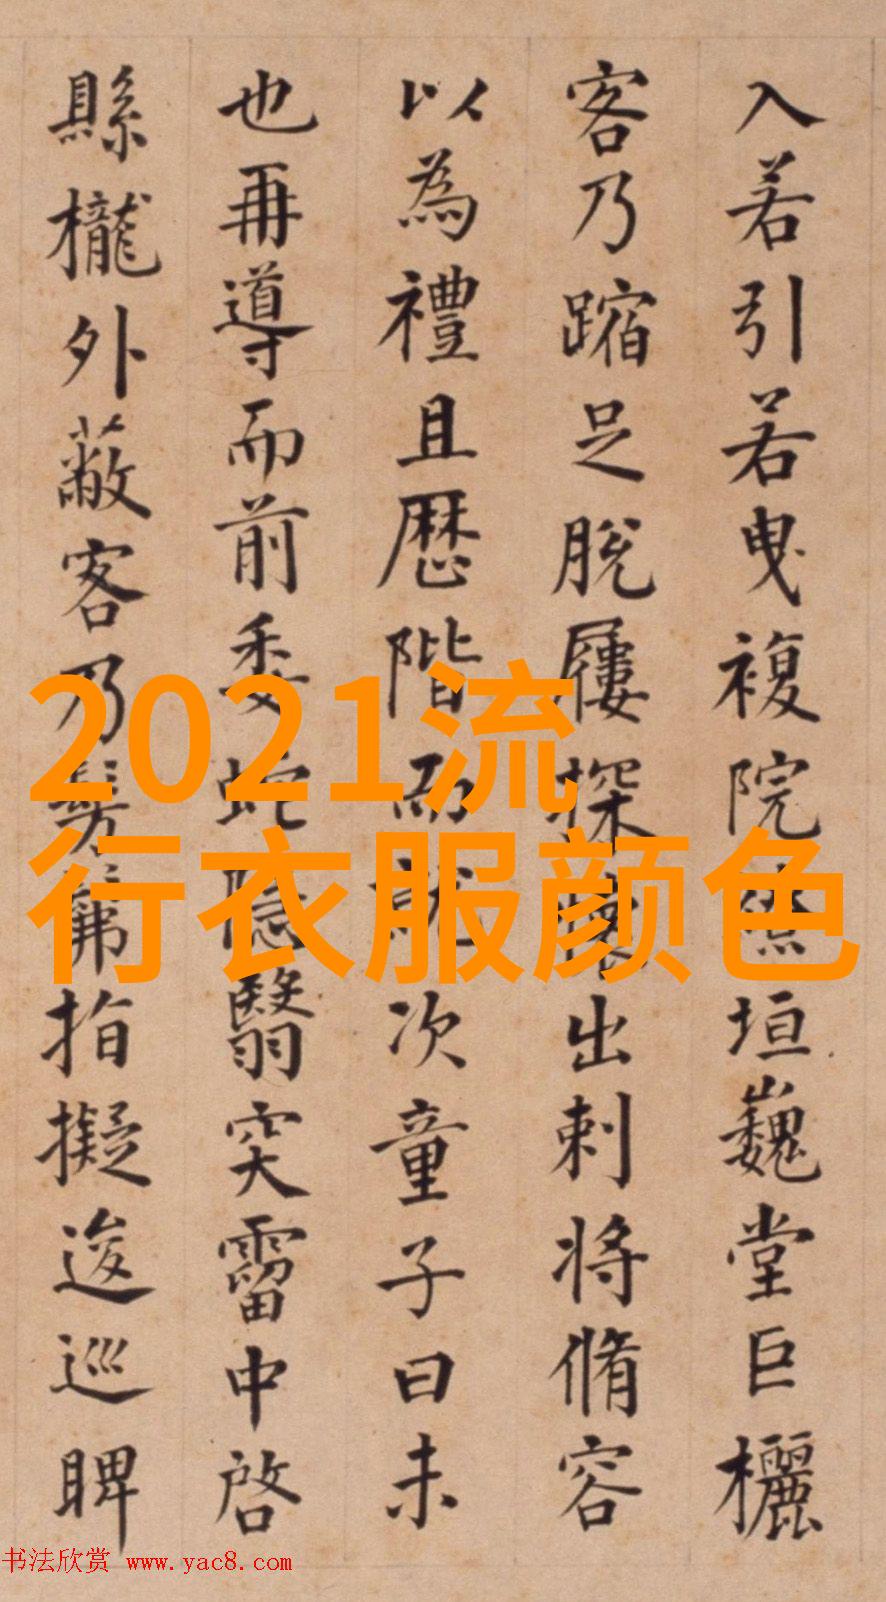 入若引若曳複院繚垣巍堂巨欐
客乃蹜足脫屨探懷出刺將脩容
以為禮且歷階而就次童子曰未
也再導而前委蛇隐翳穾霤中啓
縣櫳外蔽客乃髣髴指擬逡巡睥
2021流
行衣服颜色
书法欣赏 www.yac8.com